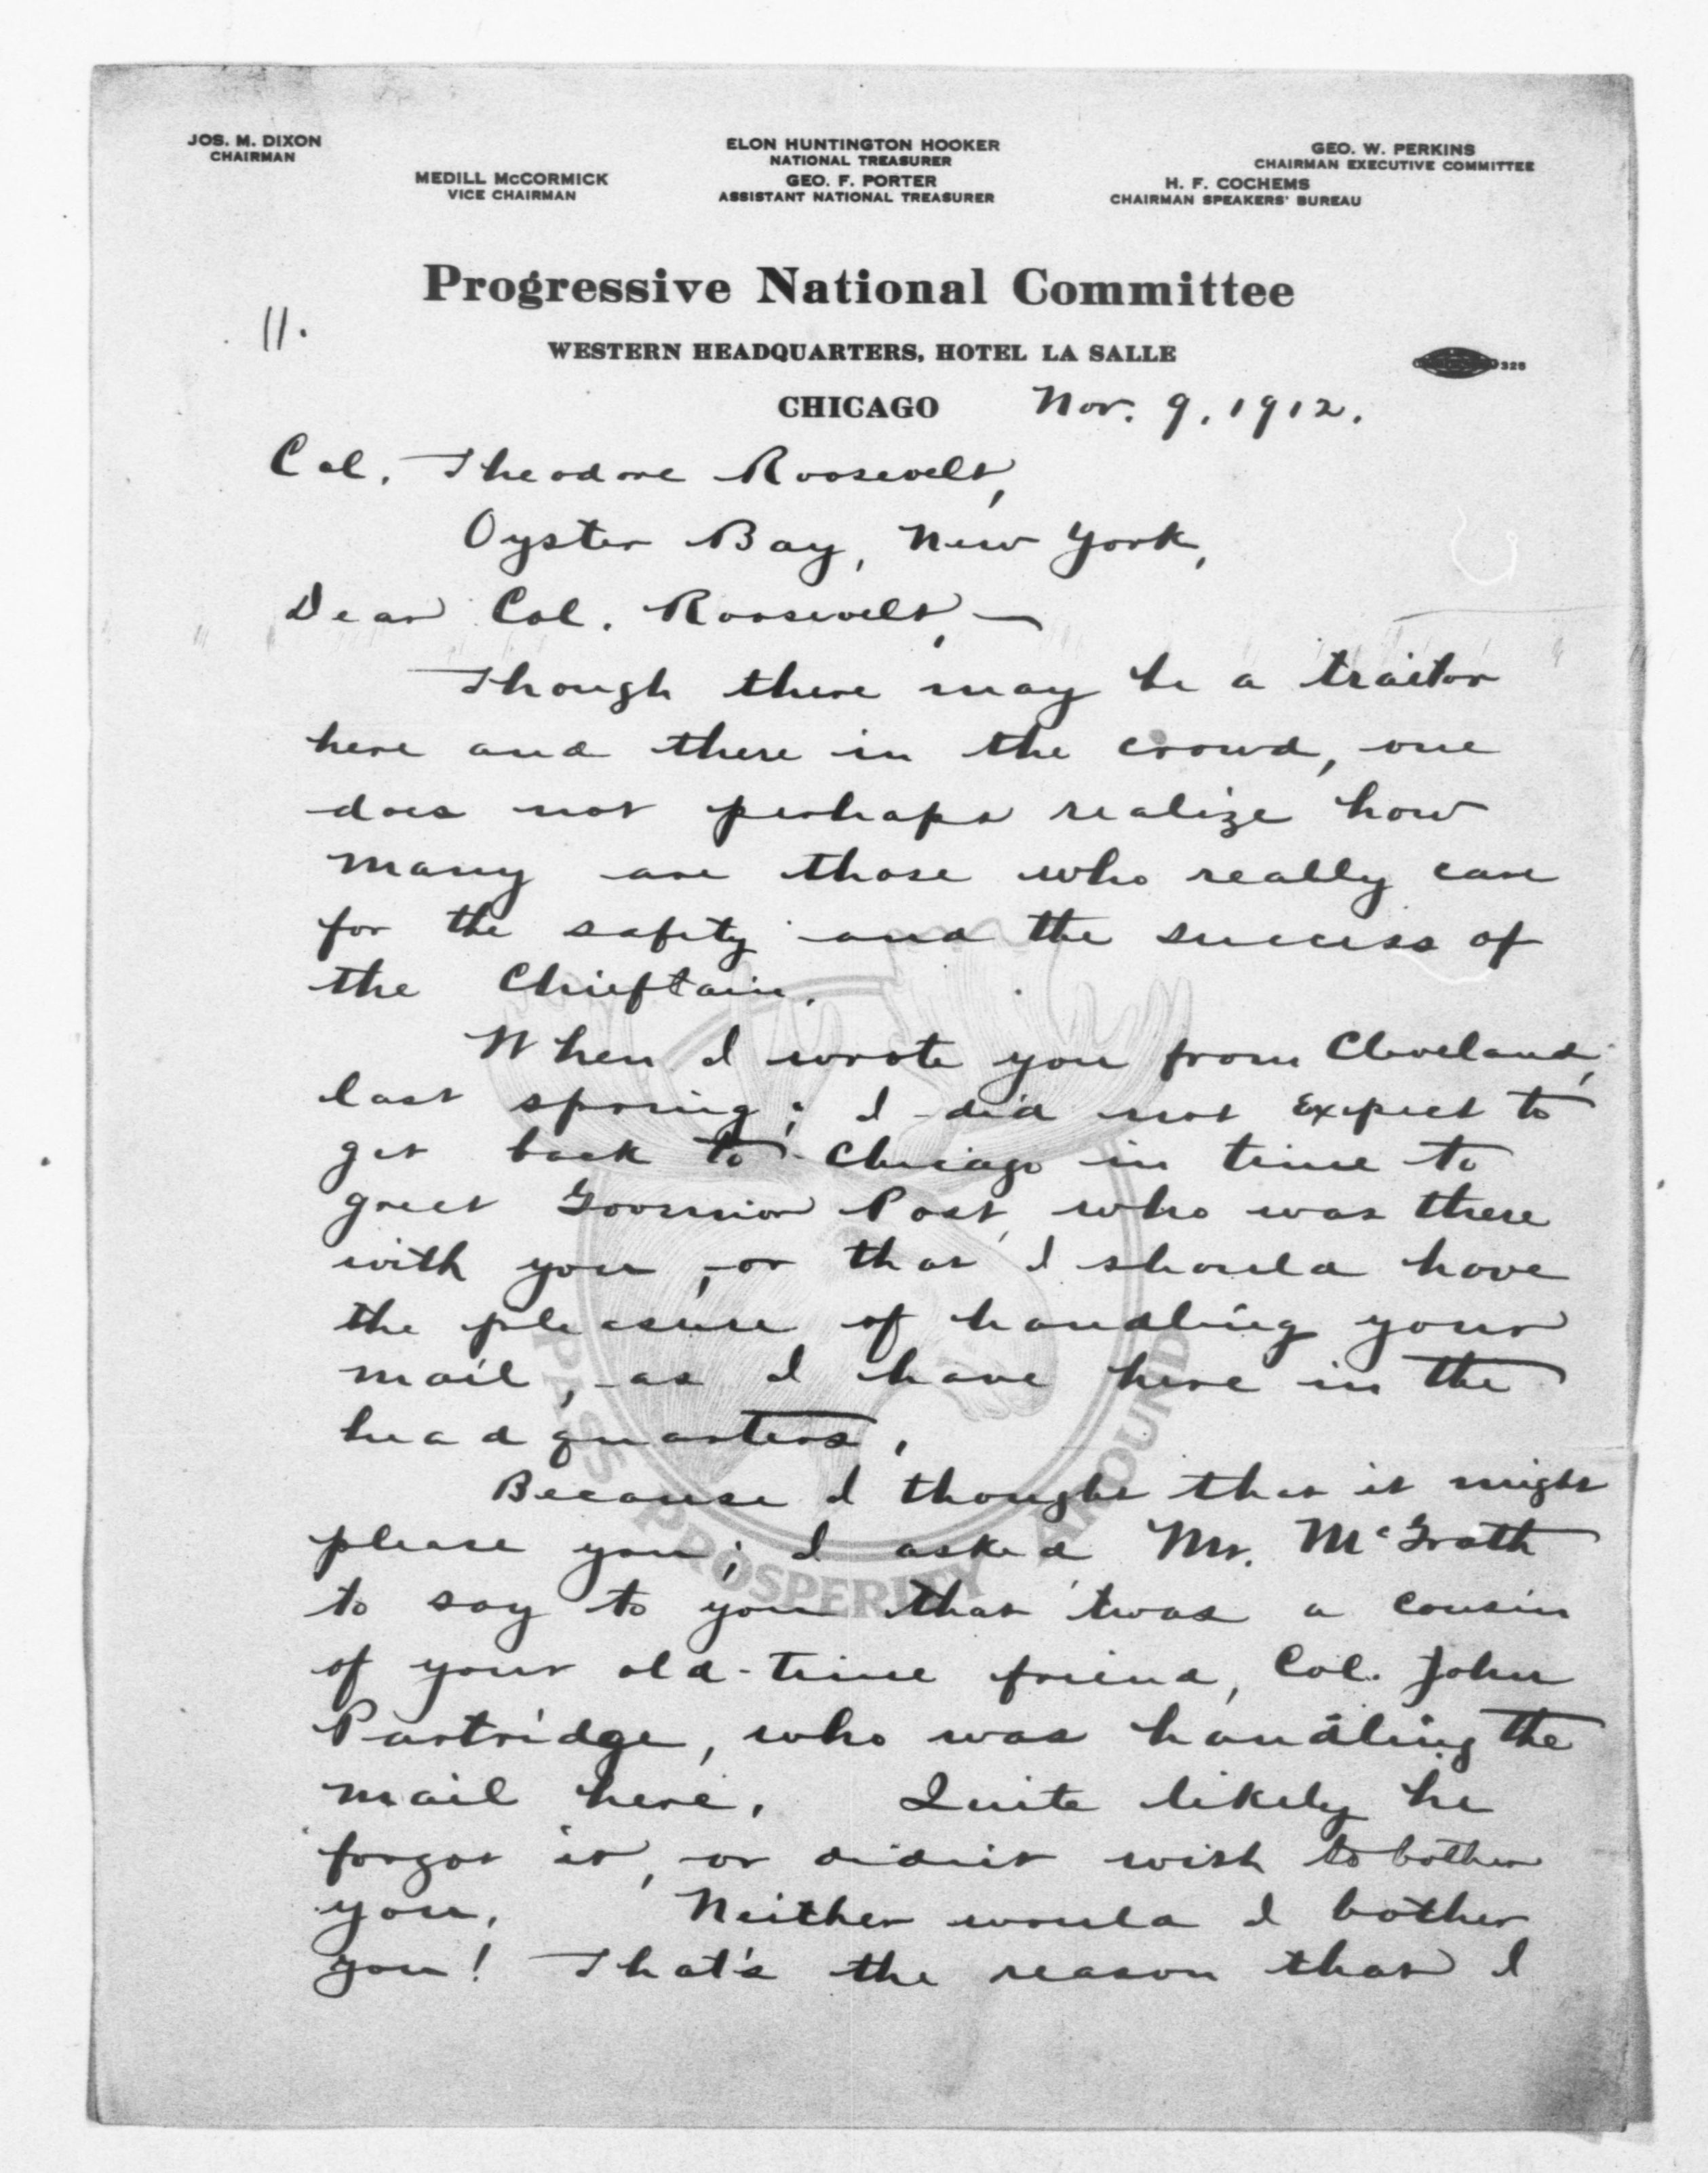 JOS. M. DIXON
CHAIRMAN
MEDILL McCORMICK
VICE CHAIRMAN
ELON HUNTINGTON HOOKER
NATIONAL TREASURER
GEO. F. PORTER
ASSISTANT NATIONAL TREASURER
GEO. W. PERKINS
CHAIRMAN EXECUTIVE COMMITTEE
H. F. COCHEMS
CHAIRMAN SPEAKERS' BUREAU
Progressive National Committee
11.
WESTERN HEADQUARTERS, HOTEL LA SALLE
325
CHICAGO Nov. 9, 1912.
Col. Theodore Roosevelt,
Oyster Bay, New York,
Dear Col. Roosevelt, —
Though there may be a traitor
here and there in the crowd, one
does not perhaps realize how
many are those who really care
for the safety and the success of
the Chieftain.
When I wrote you from Cleveland,
last spring; I did not expect to
get back to Chicago in time to
greet Governor Post, who was there
with you, or that I should have
the pleasure of handling your
mail, as I have here in the
headquarters.
Because I thought that it might
please you; I asked Mr. McGrath
to say to you that 'twas a cousin
of your old-time friend, Col. John
Partridge, who was handling the
mail here. Quite likely he
forgot it, or didn't wish to bother
you. Neither would I bother
you! That's the reason that I
PASS PROSPERITY AROUND